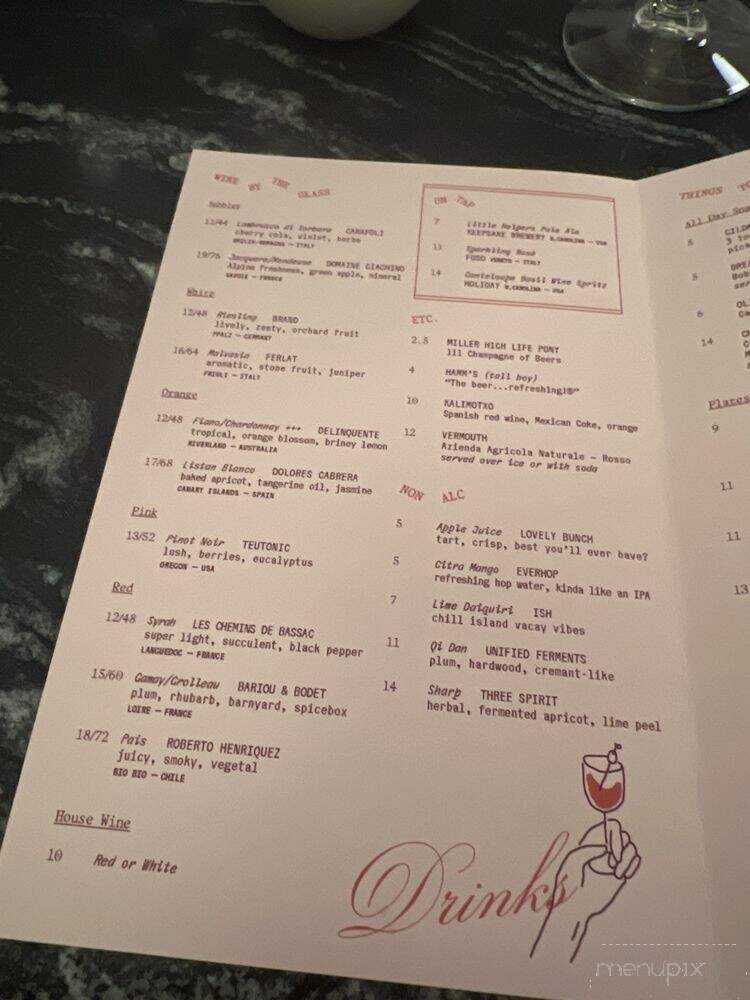 WINE BY THE GLASS
Bubbles
11/44 Lambrusco di Sorbara CAVAROLI
cherry cola, violet, herbs
EMILIA-ROMAGNA — ITALY
19/76 Jacquere/Mondeuse DOMAINE GIACHINO
Alpine freshness, green apple, mineral
SAVOIE — FRANCE
White
12/48 Riesling BRAND
lively, zesty, orchard fruit
PFALZ — GERMANY
16/64 Malvasia FERLAT
aromatic, stone fruit, juniper
FRIULI — ITALY
Orange
12/48 Fiano/Chardonnay +++ DELINQUENTE
tropical, orange blossom, briney lemon
RIVERLAND — AUSTRALIA
17/68 Listan Blanco DOLORES CABRERA
baked apricot, tangerine oil, jasmine
CANARY ISLANDS — SPAIN
Pink
13/52 Pinot Noir TEUTONIC
lush, berries, eucalyptus
OREGON — USA
Red
12/48 Syrah LES CHEMINS DE BASSAC
super light, succulent, black pepper
LANGUEDOC — FRANCE
15/60 Gamay/Grolleau BARIOU & BODET
plum, rhubarb, barnyard, spicebox
LOIRE — FRANCE
18/72 Pais ROBERTO HENRIQUEZ
juicy, smoky, vegetal
BIO BIO — CHILE
House Wine
10 Red or White
ON TAP
7 Little Helpers Pale Ale
KEEPSAKE BREWERY N.CAROLINA — USA
11 Sparkling Rosé
FUSO VENETO — ITALY
14 Canteloupe Basil Wine Spritz
HOLIDAY N.CAROLINA — USA
ETC.
2.5 MILLER HIGH LIFE PONY
lil Champagne of Beers
4 HAMM'S (tall boy)
"The beer...refreshing!®"
10 KALIMOTXO
Spanish red wine, Mexican Coke, orange
12 VERMOUTH
Azienda Agricola Naturale — Rosso
served over ice or with soda
NON ALC
5 Apple Juice LOVELY BUNCH
tart, crisp, best you'll ever have?
5 Citra Mango EVERHOP
refreshing hop water, kinda like an IPA
7 Lime Daiquiri ISH
chill island vacay vibes
11 Qi Dan UNIFIED FERMENTS
plum, hardwood, cremant-like
14 Sharp THREE SPIRIT
herbal, fermented apricot, lime peel
Drinks
THINGS
All Day
8
5
6
14
Plates
9
11
11
13
menupix